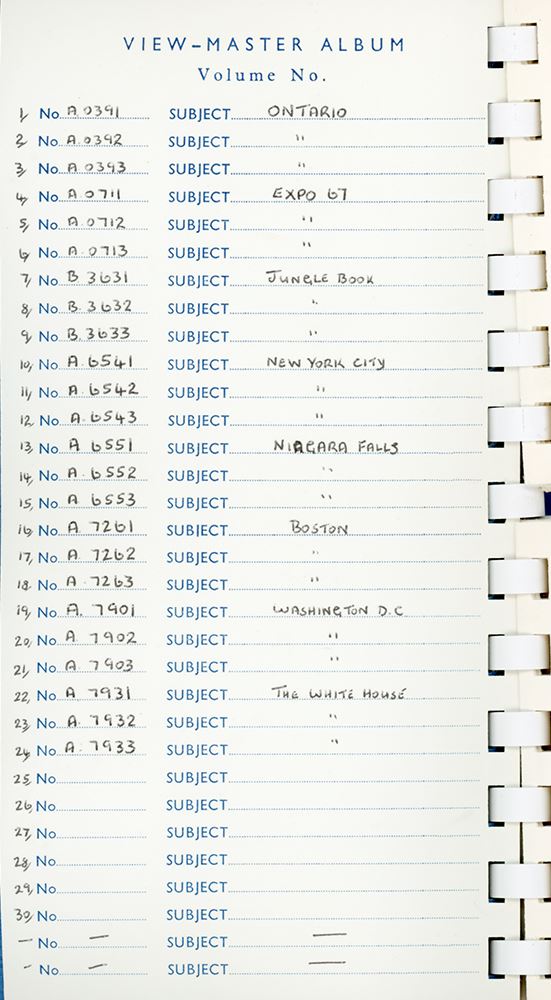 VIEW-MASTER ALBUM
Volume No.
1, No. A.0391 SUBJECT ONTARIO
2, No. A.0392 SUBJECT "
3, No. A.0393 SUBJECT "
4, No. A 0711 SUBJECT EXPO 67
5, No. A 0712 SUBJECT "
6, No. A.0713 SUBJECT "
7, No. B 3631 SUBJECT JUNGLE BOOK
8, No. B.3632 SUBJECT "
9, No. B.3633 SUBJECT "
10, No. A.6541 SUBJECT NEW YORK CITY
11, No. A.6542 SUBJECT "
12, No. A.6543 SUBJECT "
13, No. A 6551 SUBJECT NIAGARA FALLS
14, No. A 6552 SUBJECT "
15, No. A 6553 SUBJECT "
16, No. A. 7261 SUBJECT BOSTON
17, No. A. 7262 SUBJECT "
18, No. A .7263 SUBJECT "
19, No. A. 7901 SUBJECT WASHINGTON D.C
20, No. A 7902 SUBJECT "
21, No. A 7903 SUBJECT "
22, No. A 7931 SUBJECT THE WHITE HOUSE
23, No. A. 7932 SUBJECT "
24, No. A. 7933 SUBJECT "
25, No. SUBJECT
26, No. SUBJECT
27, No. SUBJECT
28, No. SUBJECT
29, No. SUBJECT
30, No. SUBJECT
— No. — SUBJECT —
— No. — SUBJECT —